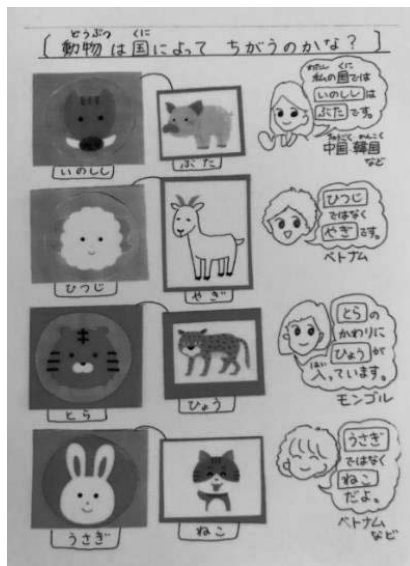 どうぶつ くに
動物は国によって ちがうのかな？
いのしし
ぶた
わたし くに
私の国では
いのしし は
ぶた です。
ちゅうごく かんこく
中国 韓国
など
ひつじ
やぎ
ひつじ
ではなく
やぎ です。
ベトナム
とら
ひょう
とら の
かわりに
ひょう が
はい
入っています。
モンゴル
うさぎ
ねこ
うさぎ
ではなく
ねこ
だよ。
ベトナム
など